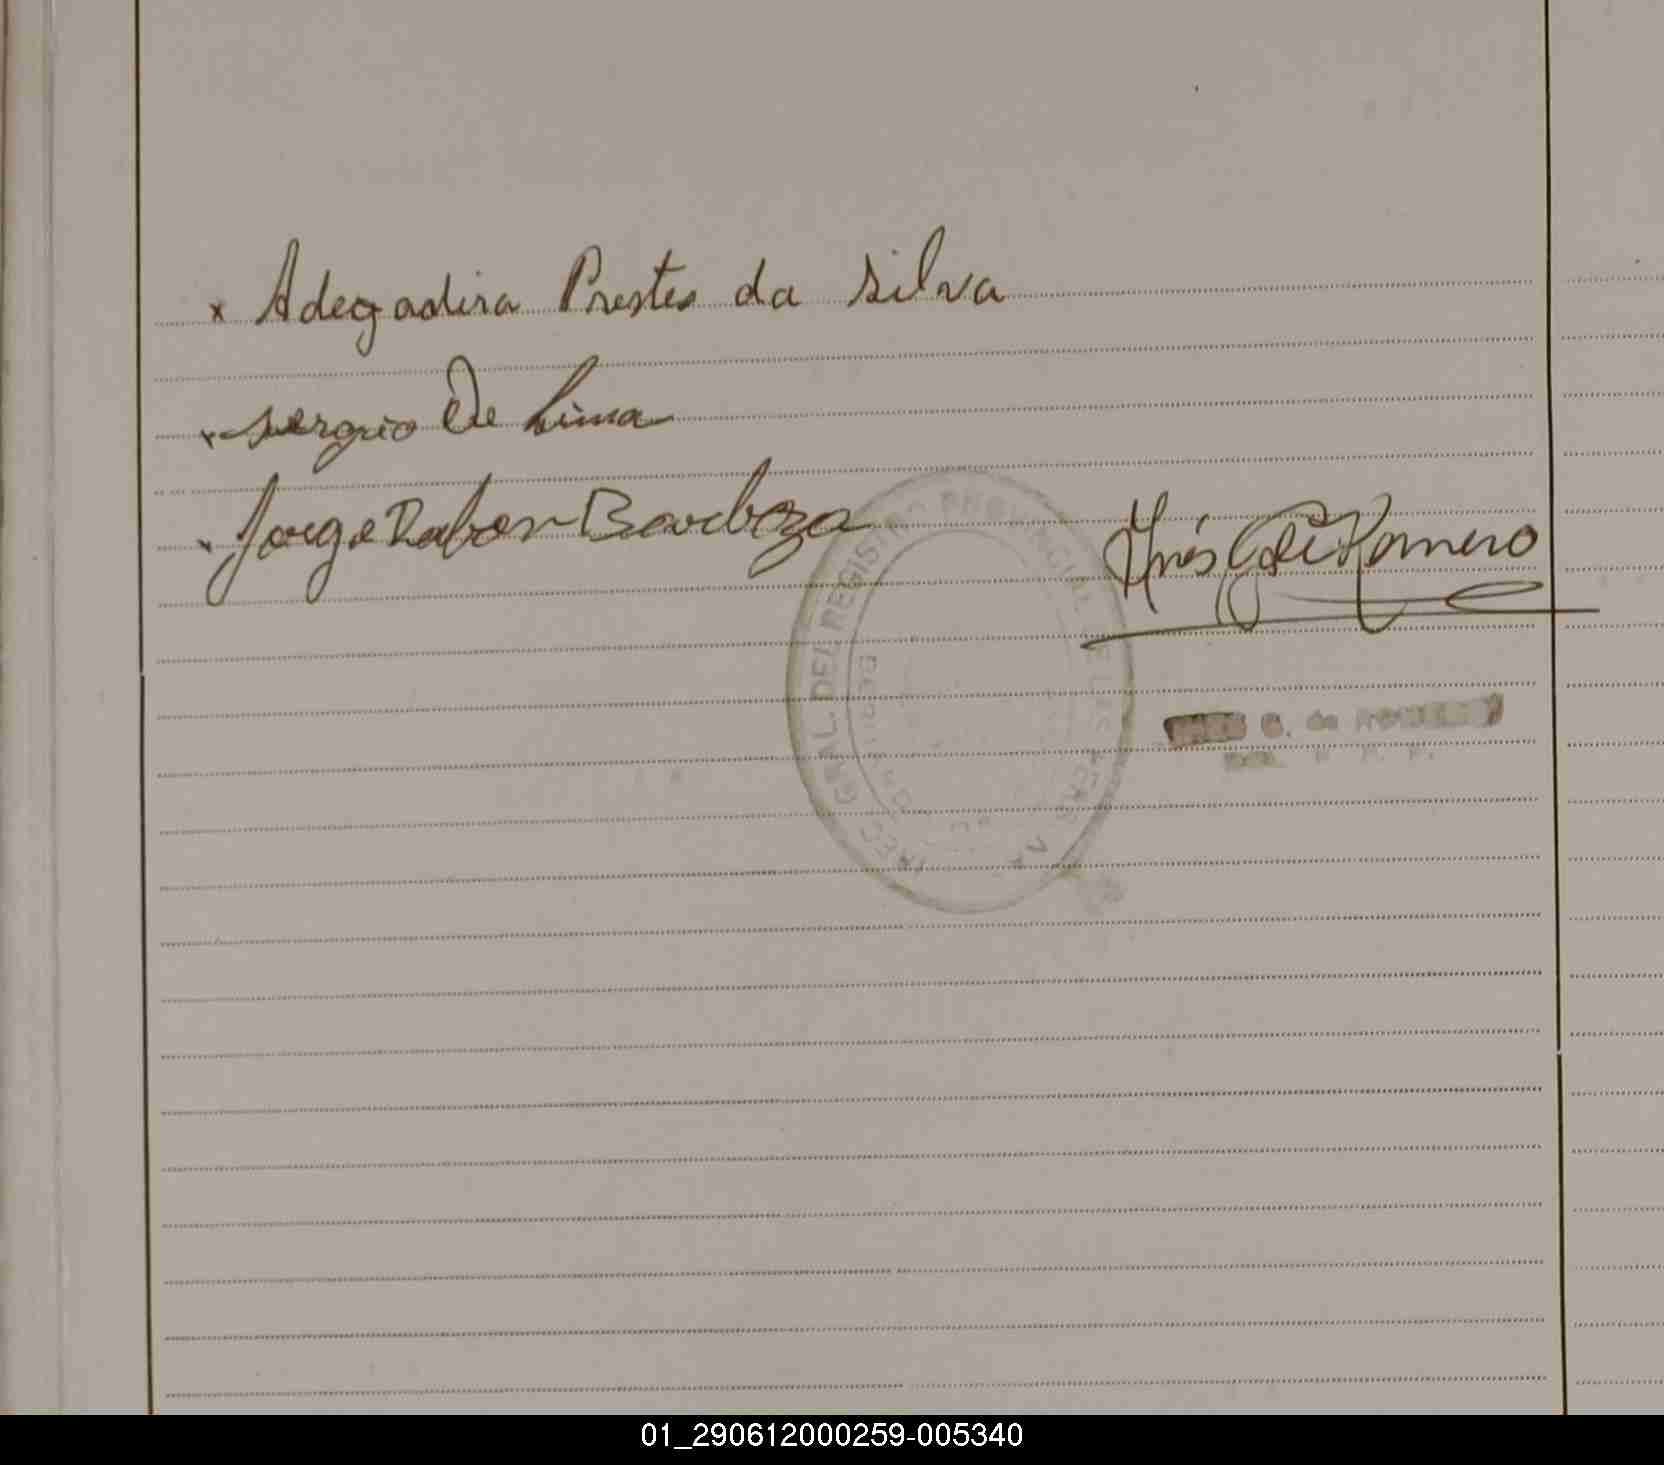 x Adegadira Prestes da Silva
x sergio De Lima
x Jorge Barboza
Inés G de Romero
GRAL. DEL REGISTRO PROVINCIAL DE LAS PERSONAS
G. de ROMERO
01_290612000259-005340